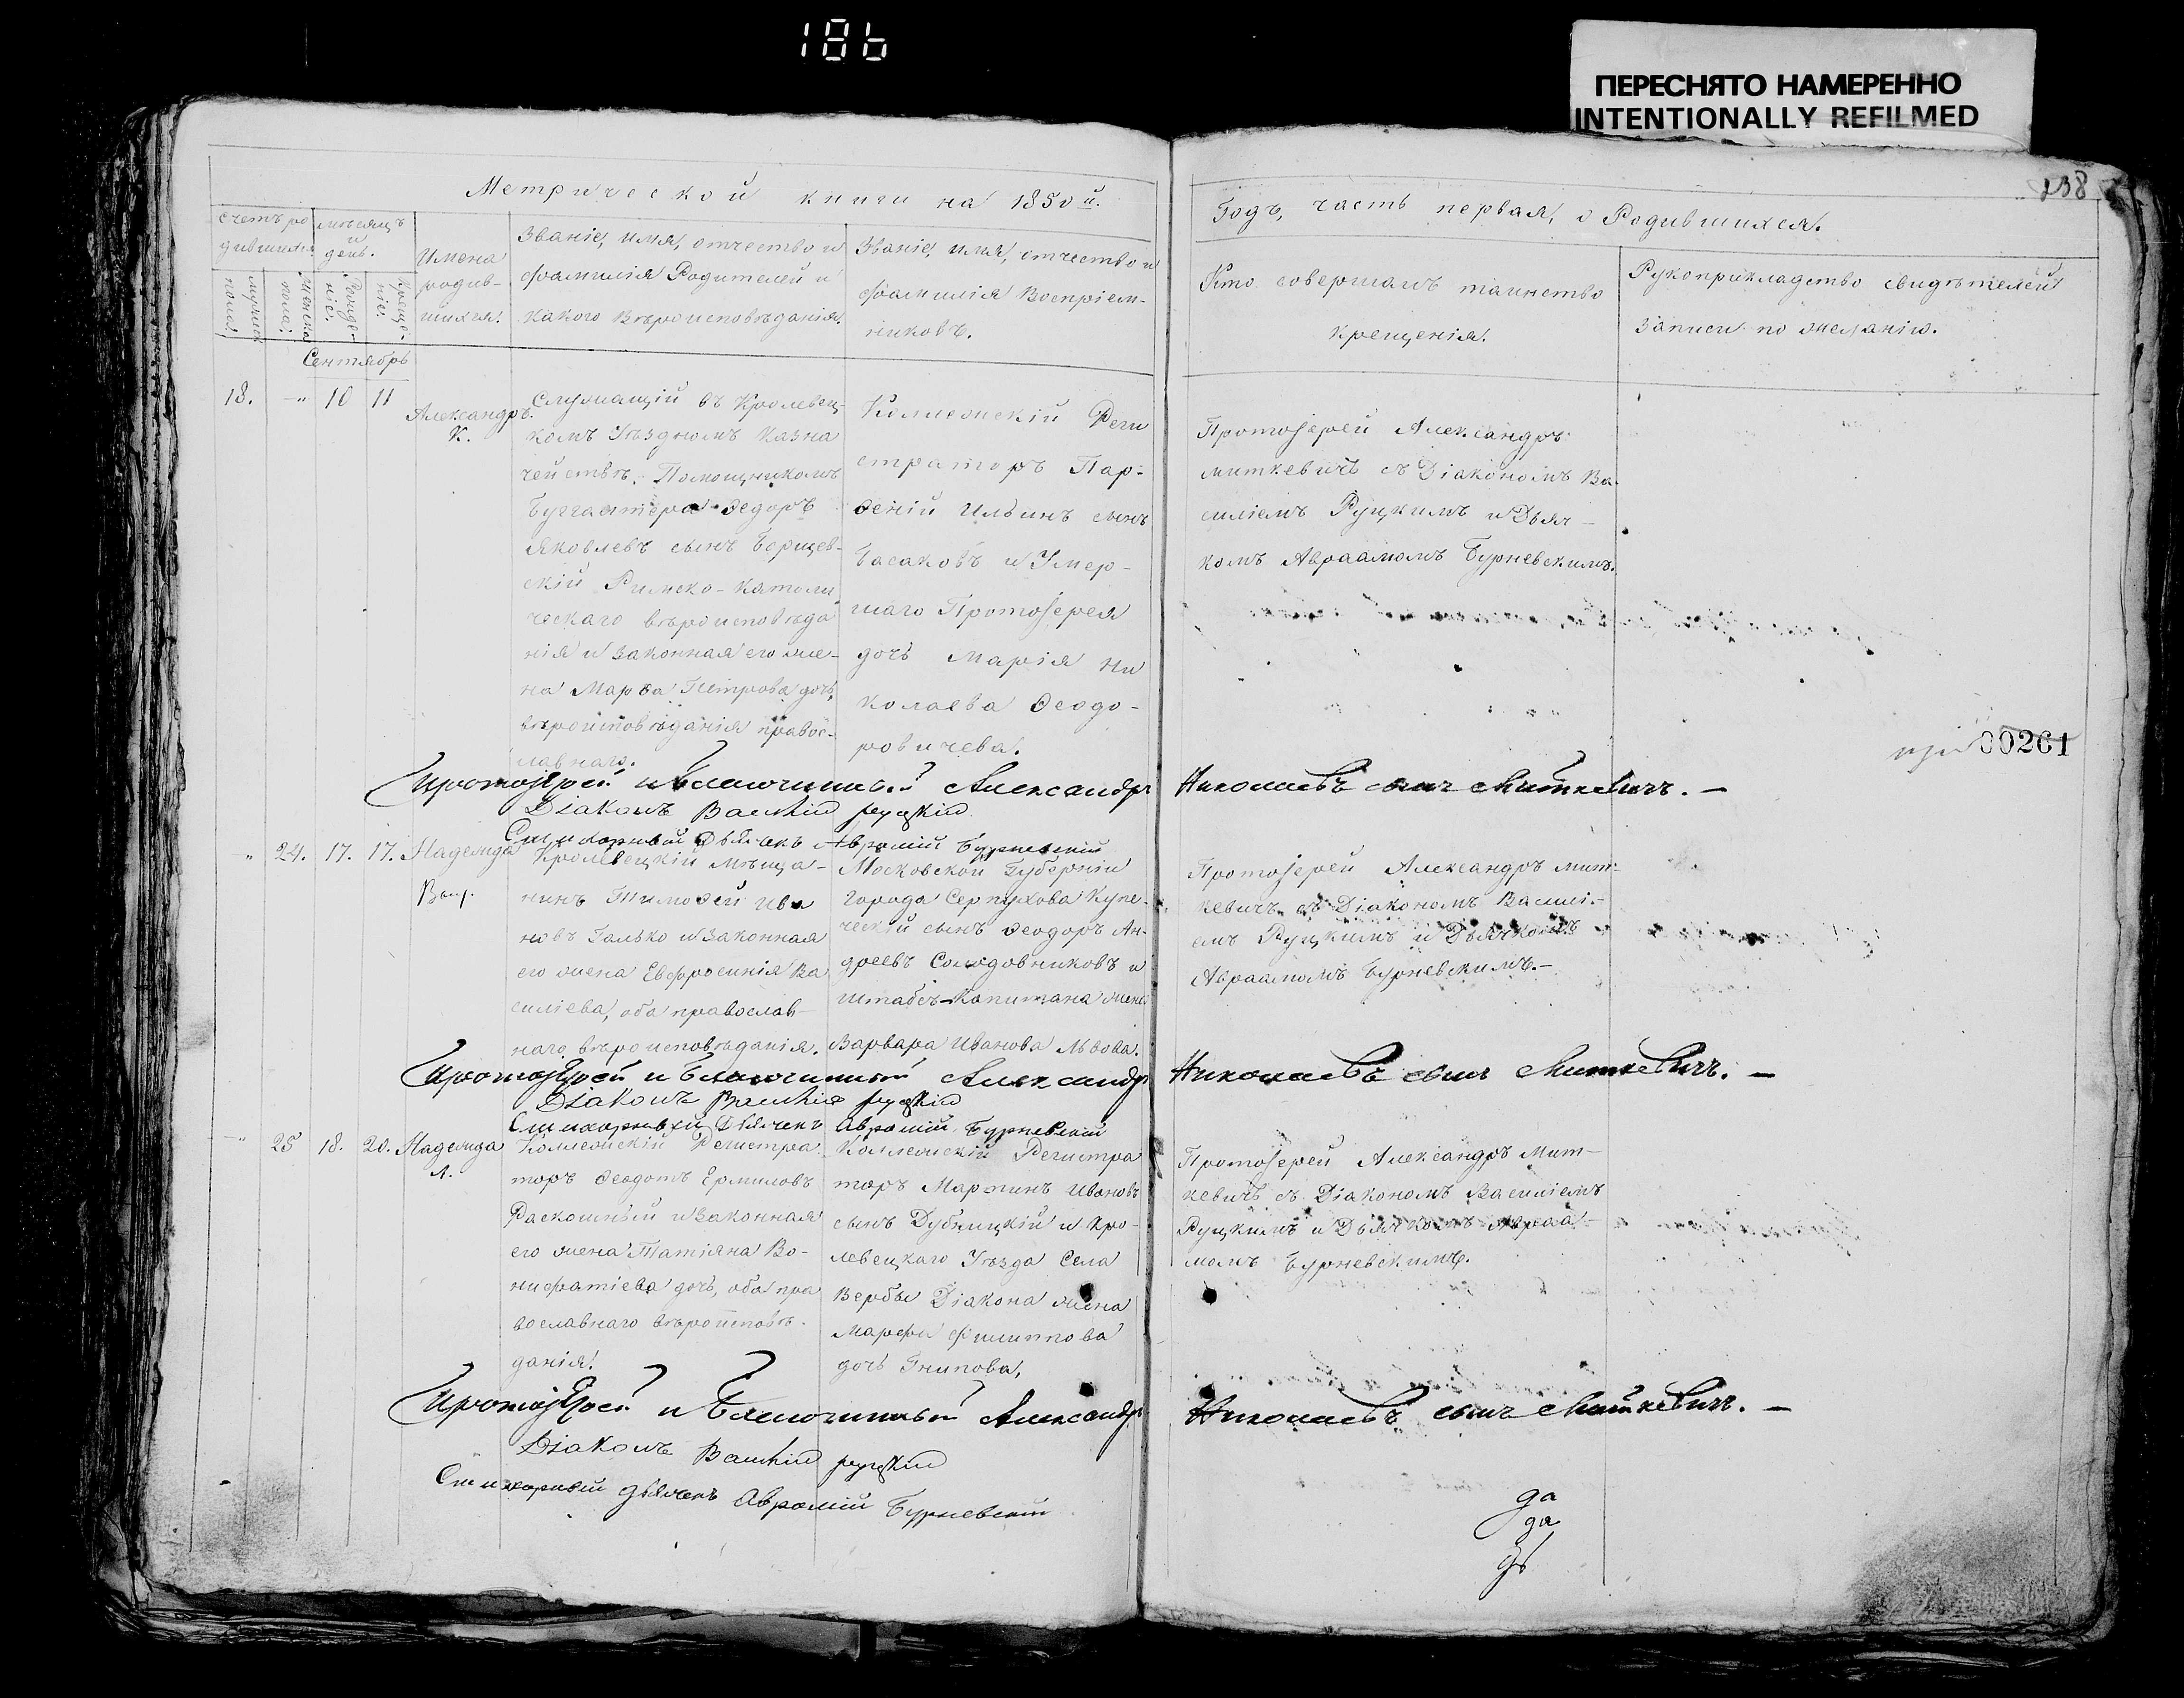 186
ПЕРЕСНЯТО НАМЕРЕННО
INTENTIONALLY REFILMED
138
Метрической книги на 1850 й.
Годъ, часть первая, о Родившихся.
счетъ ро
дившихся
мѣсяцъ
и
день.
мужеска
пола.
женска
пола.
Рожде-
ніе.
Креще-
ніе.
Имена
родив-
шихся.
Званіе, имя, отчество и
фамилія Родителей и
какого вѣроисповѣданія.
Званіе, имя, отчество и
фамилія Воспріем-
никовъ.
Кто совершалъ таинство
крещенія.
Рукоприкладство свидѣтелей
записи по желанію.
Сентябрь
18. —" 10 11
Александръ.
К.
Служащій въ Кролевец-
комъ Уѣздномъ Казна
чействѣ, Помощникомъ
Бухгалтера Ѳедоръ
Яковлевъ сынъ
скій Римско-Католи
ческаго вѣроисповѣда
нія и законная его же-
на Марѳа Петрова дочь,
вѣроисповѣданія правос-
лавнаго.
Коллежскій Реги
страторъ Пар-
ѳеній Ильинъ сынъ
Басаковъ и Умер-
шаго Протоіерея
дочь Марія Ни
колаева Ѳеодо-
ровичева.
Протоіерей Александръ
Миткевичъ съ Діакономъ Ва-
силіемъ Руцкимъ и Дьяч-
комъ Авраамомъ Бурневскимъ.
00261
Протоіерей и Благочинный Александръ Николаевъ сынъ Миткевичъ. —
Діаконъ Василій Руцкій
Стихарный Дьячекъ Аврамій Бурневскій
" 24. 17. 17. Надежда
Кролевецкій Мѣща-
нинъ Тимоѳей Ива
новъ Галько и законная
его жена Евфросинія Ва
силіева, оба православ-
наго вѣроисповѣданія.
Московской Губерніи
города Серпухова Купе-
ческій сынъ Ѳеодоръ Ан-
дреевъ Солодовниковъ и
штабсъ-Капитана жена
Варвара Иванова Львова.
Протоіерей Александръ Мит-
кевичъ съ Діакономъ Василі-
емъ Руцкимъ и Дьячкомъ
Авраамомъ Бурневскимъ.—
Протоіерей и Благочинный Александръ Николаевъ сынъ Миткевичъ. —
Діаконъ Василій Руцкій
Стихарный Дьячекъ Аврамій Бурневскій
—" 25 18. 20. Надежда
Л.
Коллежскій Регистра
торъ Ѳеодотъ Ермиловъ
Раскошный и законная
его жена Татіяна Во-
нифатіева дочь, оба пра
вославнаго вѣроисповѣ-
данія.
Коллежскій Регистра
торъ Мартинъ Ивановъ
сынъ Дубницкій и Кро-
левецкаго Уѣзда Села
Вербы Діакона жена
Марфа Филиппова
дочь Гнипова,
Протоіерей Александръ Мит-
кевичъ съ Діакономъ Василіемъ
Руцкимъ и Дьячкомъ Авраа-
момъ Бурневскимъ.
Протоіерей и Благочинный Александръ Николаевъ сынъ Миткевичъ. —
Діаконъ Василій Руцкій
Стихарный дьячекъ Аврамій Бурневскій
да
да